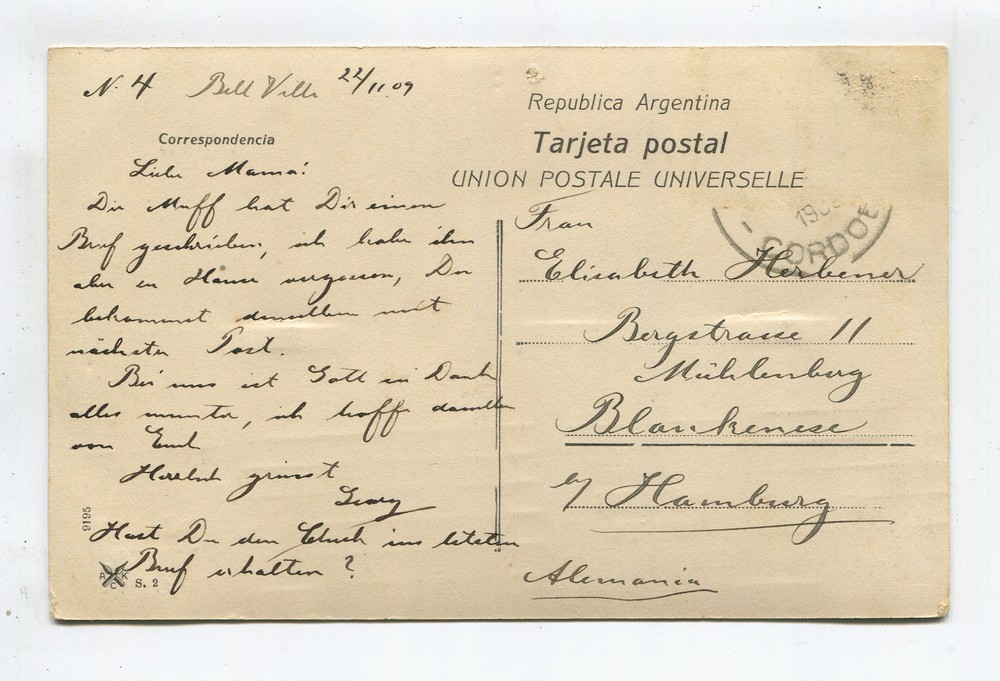 N. 4 Bell Ville 22/11 09
Correspondencia
Liebe Mama!
Die Muff hat Dir einen
Brief geschrieben, ich habe ihn
aber zu Hause vergessen, Du
bekommst denselben mit
nächster Post.
Bei uns ist Gott sei Dank
alles munter, ich hoffe dasselbe
von Euch
Herzlich grüsst
Georg
Hast Du den Check im letzten
Brief erhalten?
9195
S. 2
Republica Argentina
Tarjeta postal
UNION POSTALE UNIVERSELLE
CORDOB
Frau
Elisabeth Herbener
Bergstrasse 11
Mühlenberg
Blankenese
b/ Hamburg
Alemania